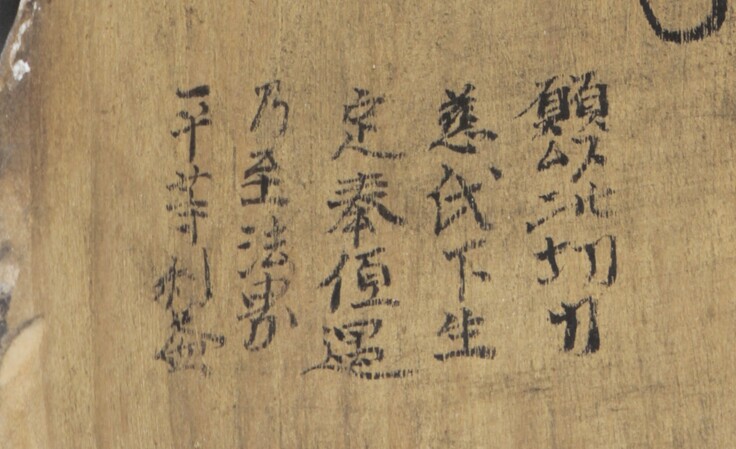 願以此功力
慈氏下生
定奉値遇
乃至法界
平等利益